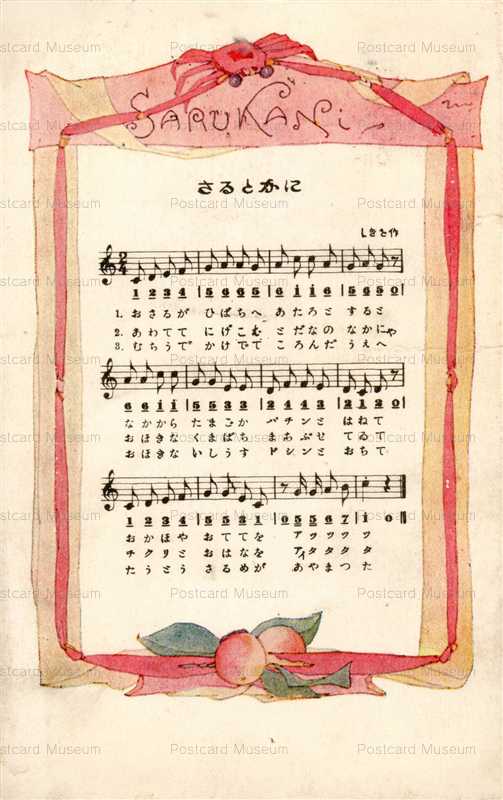 SARUKANi
さるとかに
しきを作
2/4
1 2 3 4 | 5 6 6 5 | 6 i i 6 | 5 6 5 0
1. おさるが ひばちへ あたろと すると
2. あわてて にげこむ とだなの なかにや
3. むちうで かけでて ころんだ うえへ
6 6 i i | 5 5 3 3 | 2 4 4 3 | 2 1 2 0
なかから たまごが パチンと はねて
おほきな くまばち まあぶせ てゐて
おほきな いしうす ドシンと おちて
1 2 3 4 | 5 5 3 1 | 0 5 5 6 7 | i 0
おかほや おててを アツツツ ツ
チクリと おはなを アイタタタ タ
たうとう さるめが あやまつ た
Postcard Museum